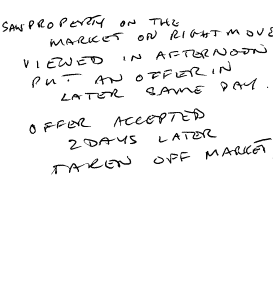 SAW PROPERTY ON THE
MARKET ON RIGHTMOVE
VIEWED IN AFTERNOON
PUT AN OFFER IN
LATER SAME DAY.
OFFER ACCEPTED
2 DAYS LATER
TAKEN OFF MARKET